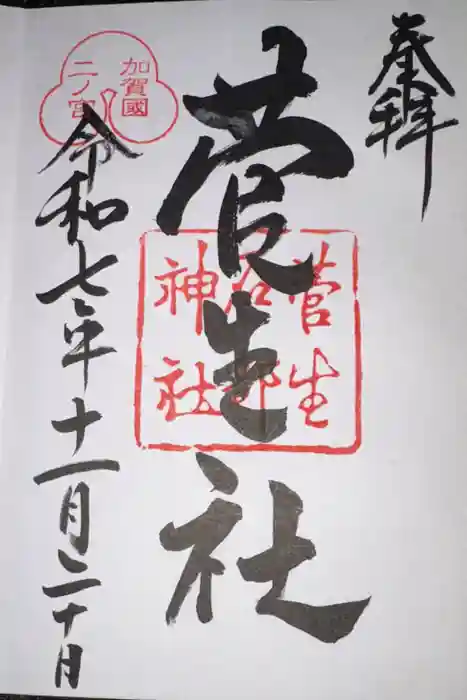 奉拝
菅生社
菅生
石部
神社
加賀國
二ノ宮
令和七年十一月二十日